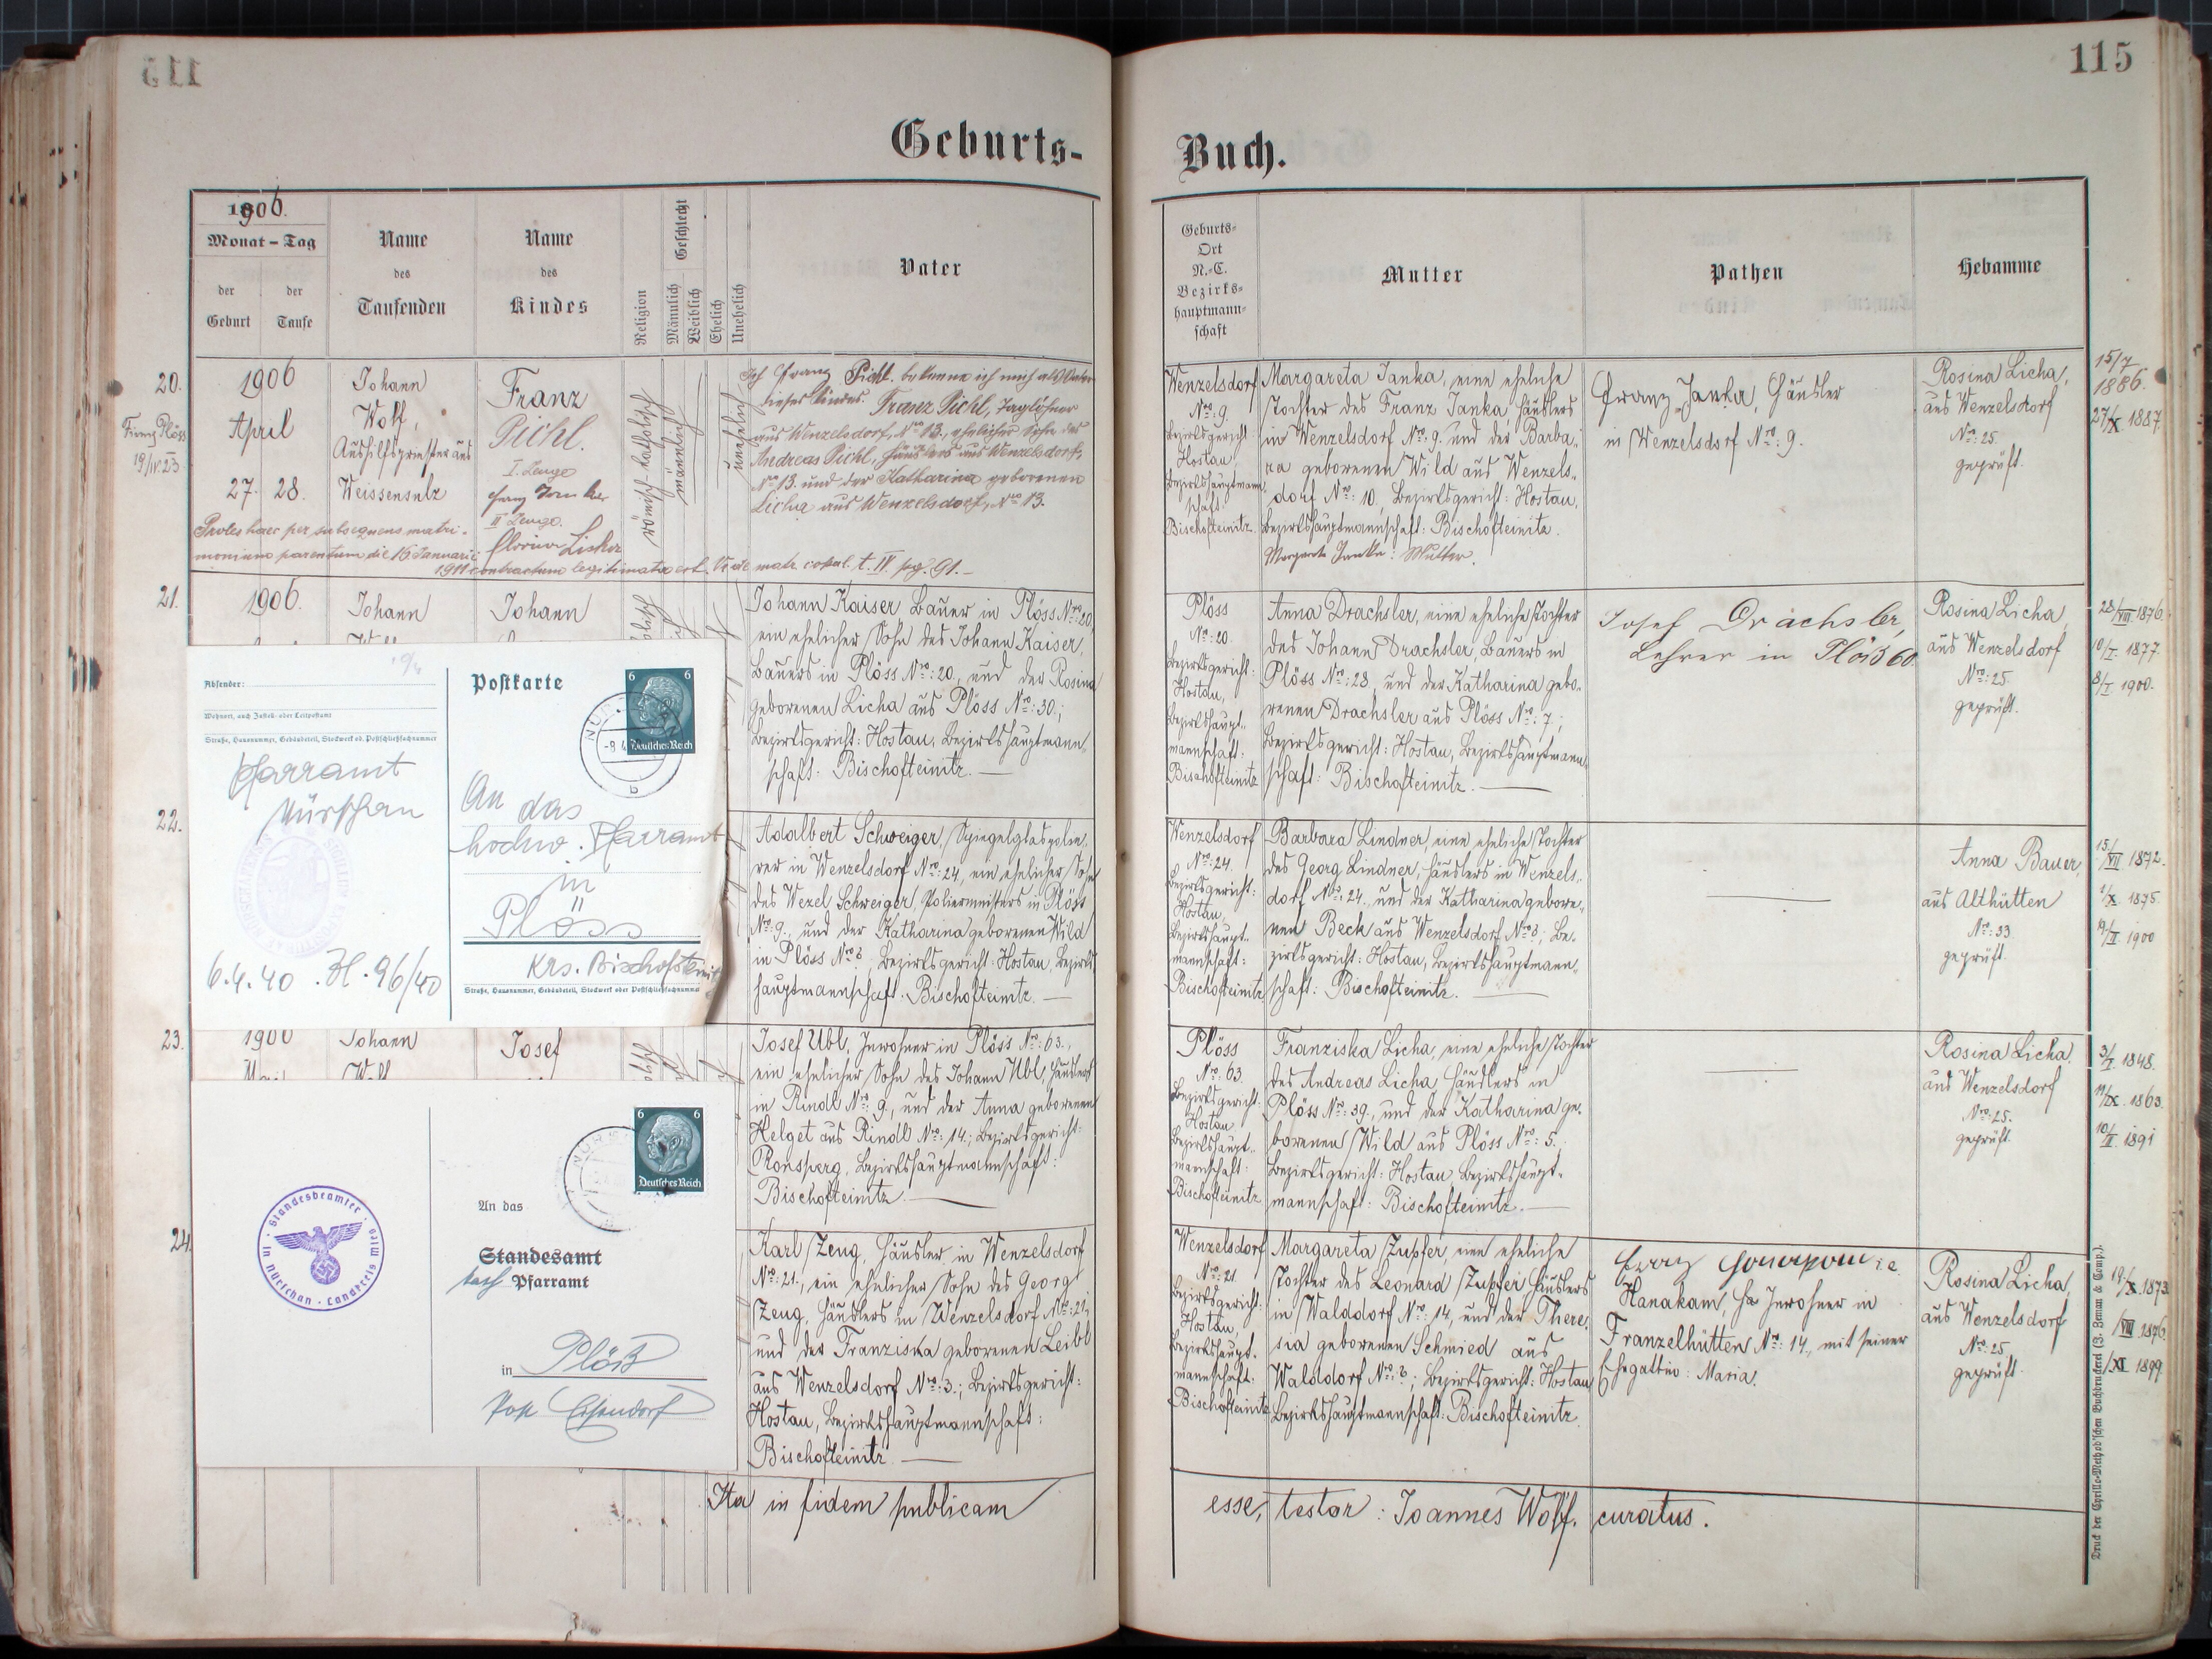 115
Geburts-
1906.
Monat – Tag
der Geburt
der Taufe
Name des Taufenden
Name des Kindes
Religion
Geschlecht
Männlich
Weiblich
Ehelich
Unehelich
Vater
20.
1906
April
27. 28.
19/IV.23
Johann
Wolf,
Aushilfspriester aus
Weissensulz
Franz
Pichl.
I. Zeuge
II Zeuge.
römisch-katholisch
männlich
unehelich
Ich Franz Pichl. bekenne ich mich als Vater
dieses Kindes. Franz Pichl, Taglöhner
aus Wenzelsdorf, Nro 13., ehelicher Sohn des
Andreas Pichl, Häuslers aus Wenzelsdorf,
Nro 13. und der Katharina geborenen
Licha aus Wenzelsdorf, Nro 13.
Proles haec per subsequens matri-
monium parentum die 16 Januarii
1911 contractum legitimata est. Vide matr. copul. t. IV. pag. 91.–
21.
1906.
Johann
Johann
Johann Kaiser, Bauer in Plöss Nro: 20,
ein ehelicher Sohn des Johann Kaiser,
Bauers in Plöss Nro: 20., und der Rosina
geborenen Licha aus Plöss Nro: 30.;
Bezirksgericht: Hostau, Bezirkshauptmann
schaft: Bischofteinitz. —
Absender:
Wohnort, auch Zustell- oder Leitpostamt
Straße, Hausnummer, Gebäudeteil, Stockwerk od. Postschließfachnummer
Pfarramt
Nürschan
6.4.40. Zl. 96/40
Postkarte
6 6
Deutsches Reich
An das
hochw. Pfarramt
in
Plöss
Krs. Bischofteinitz
Straße, Hausnummer, Gebäudeteil, Stockwerk oder Postschließfachnummer
22.
Adalbert Schweiger, Spiegelglaspolie-
rer in Wenzelsdorf Nro: 24, ein ehelicher Sohn
des Wezel Schweiger, Poliermeisters in Plöss
Nro: 9., und der Katharina geborenen Wild
in Plöss Nro 8; Bezirksgericht: Hostau, Bezirks
hauptmannschaft: Bischofteinitz. —
23.
1906
Johann
Josef
Josef Ubl, Inwohner in Plöss Nro: 63.,
ein ehelicher Sohn des Johann Ubl, Häuslers
in Rindl Nro: 9., und der Anna geborenen
Helget aus Rindl Nro: 14.; Bezirksgericht:
Ronsperg, Bezirkshauptmannschaft:
Bischofteinitz —
Standesbeamter · in Nürschan · Landkreis Mies
6 6
Deutsches Reich
An das
Standesamt
Pfarramt
in Plöß
Post Eisendorf
24.
Karl Zeug, Häusler in Wenzelsdorf
Nro: 21., ein ehelicher Sohn des Georg
Zeug, Häuslers in Wenzelsdorf Nro: 21,
und der Franziska geborenen Leibl
aus Wenzelsdorf Nro: 3.; Bezirksgericht:
Hostau, Bezirkshauptmannschaft:
Bischofteinitz. —
Ita in fidem publicam
115
Buch.
Geburts-
Ort
N.-C.
Bezirks-
hauptmann-
schaft
Mutter
Pathen
Hebamme
Wenzelsdorf
Nro: 9.
Bezirksgericht
Hostau,
Bezirkshauptmann
schaft:
Bischofteinitz.
Margareta Janka, eine eheliche
Tochter des Franz Janka, Häuslers
in Wenzelsdorf Nro: 9. und der Barba-
ra geborenen Wild aus Wenzels-
dorf Nro: 10, Bezirksgericht: Hostau,
Bezirkshauptmannschaft: Bischofteinitz.
Margareta Janka: Mutter.
Franz Janka, Häusler
in Wenzelsdorf Nro: 9.
Rosina Licha,
aus Wenzelsdorf
Nro: 25.
geprüft.
15/7
1886.
27/X. 1887.
Plöss
Nro: 20.
Bezirksgericht:
Hostau,
Bezirkshaupt-
mannschaft:
Bischofteinitz
Anna Drachsler, eine eheliche Tochter
des Johann Drachsler, Bauers in
Plöss Nro: 28., und der Katharina gebo-
renen Drachsler aus Plöss Nro: 7.;
Bezirksgericht: Hostau, Bezirkshauptmann
schaft: Bischofteinitz. —
Josef Drachsler,
Lehrer in Plöß 60.
Rosina Licha,
aus Wenzelsdorf
Nro: 25.
geprüft.
28/VIII 1876.
10/I. 1877.
8/I 1900.
Wenzelsdorf
Nro: 24.
Bezirksgericht:
Hostau,
Bezirkshaupt-
mannschaft:
Bischofteinitz
Barbara Lindner, eine eheliche Tochter
des Georg Lindner, Häuslers in Wenzels-
dorf Nro: 24., und der Katharina gebore-
nen Beck aus Wenzelsdorf Nro 8; Be-
zirksgericht: Hostau, Bezirkshauptmann-
schaft: Bischofteinitz. —
Anna Bauer,
aus Althütten
Nro: 33
geprüft.
15/VII 1872.
1/X. 1875.
19/II. 1900
Plöss
Nro: 63.
Bezirksgericht:
Hostau
Bezirkshaupt-
mannschaft:
Bischofteinitz
Franziska Licha, eine eheliche Tochter
des Andreas Licha Häuslers in
Plöss Nro: 39., und der Katharina ge-
borenen Wild aus Plöss Nro: 5.
Bezirksgericht: Hostau, Bezirkshaupt-
mannschaft: Bischofteinitz. —
Rosina Licha,
aus Wenzelsdorf
Nro: 25.
geprüft.
3/I. 1848.
11/IX. 1863.
10/II. 1891
Wenzelsdorf
Nro: 21.
Bezirksgericht:
Hostau,
Bezirkshaupt-
mannschaft:
Bischofteinitz
Margareta Zupfer, eine eheliche
Tochter des Leonard Zupfer Häuslers
in Walddorf Nro: 14, und der There-
sia geborenen Schmied aus
Walddorf Nro: 8; Bezirksgericht: Hostau
Bezirkshauptmannschaft: Bischofteinitz.
Hanakam, Inwohner in
Franzelhütten Nro: 14., mit seiner
Ehegattin: Maria.
Rosina Licha,
aus Wenzelsdorf
Nro: 25
geprüft.
19./X. 1873.
/VIII 1876.
/XI. 1899.
esse, testor: Joannes Wolf, curatus.
Druck der Cyrillo-Method'schen Buchdruckerei (J. Zeman & Comp.).